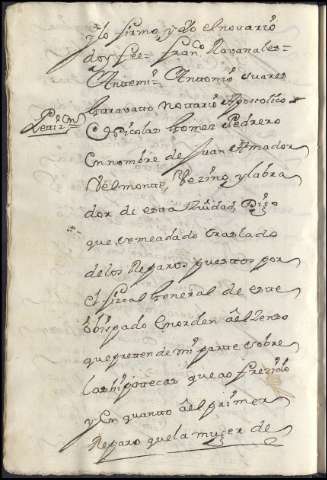 y lo firmo, y yo el notario
doy fee = Fran.co Ravanales =
Antemi = Antonio Suares
Caravaxo Notario Apostolico =
Petiz.on
Nicolas Gomes Pedrero
en nombre de Juan Amador
Velmonte, Vezino y labra
dor di esta Ciudad Digo
que semeadado traslado
de los Reparos puestos por
el fiscal General de este
obispado en orden al Zenso
que pretende mi parte sobre
las hipotecas que ao frezido
y en quanto al primer
Reparo que la mujer de